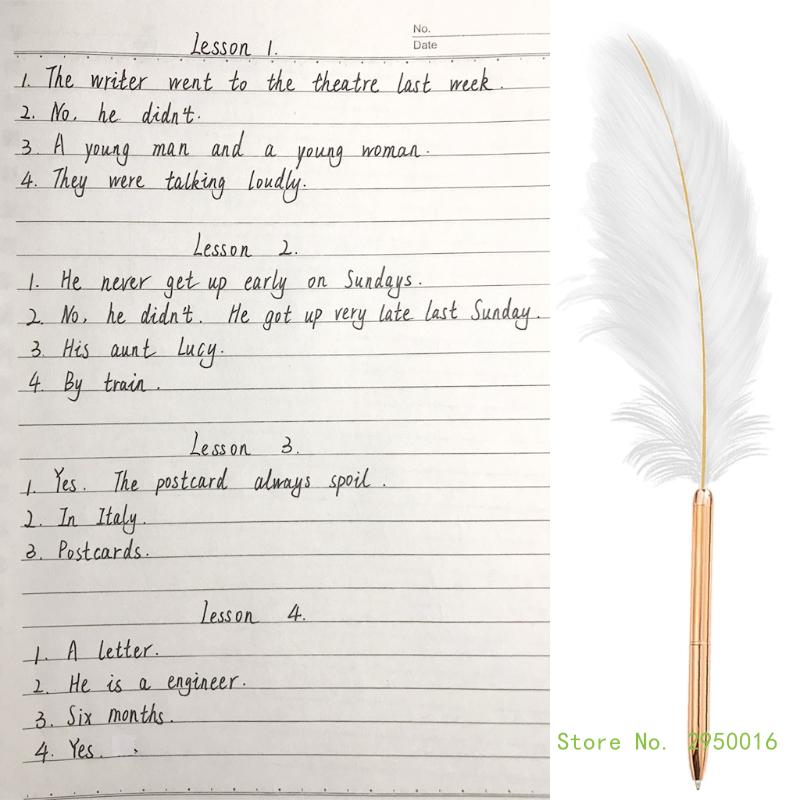 No.
Date
Lesson 1.
1. The writer went to the theatre last week.
2. No, he didn't.
3. A young man and a young woman.
4. They were talking loudly.
Lesson 2.
1. He never get up early on Sundays.
2. No, he didn't. He got up very late last Sunday.
3. His aunt Lucy.
4. By train.
Lesson 3.
1. Yes. The postcard always spoil.
2. In Italy.
3. Postcards.
Lesson 4.
1. A letter.
2. He is a engineer.
3. Six months.
4. Yes.
Store No. 2950016